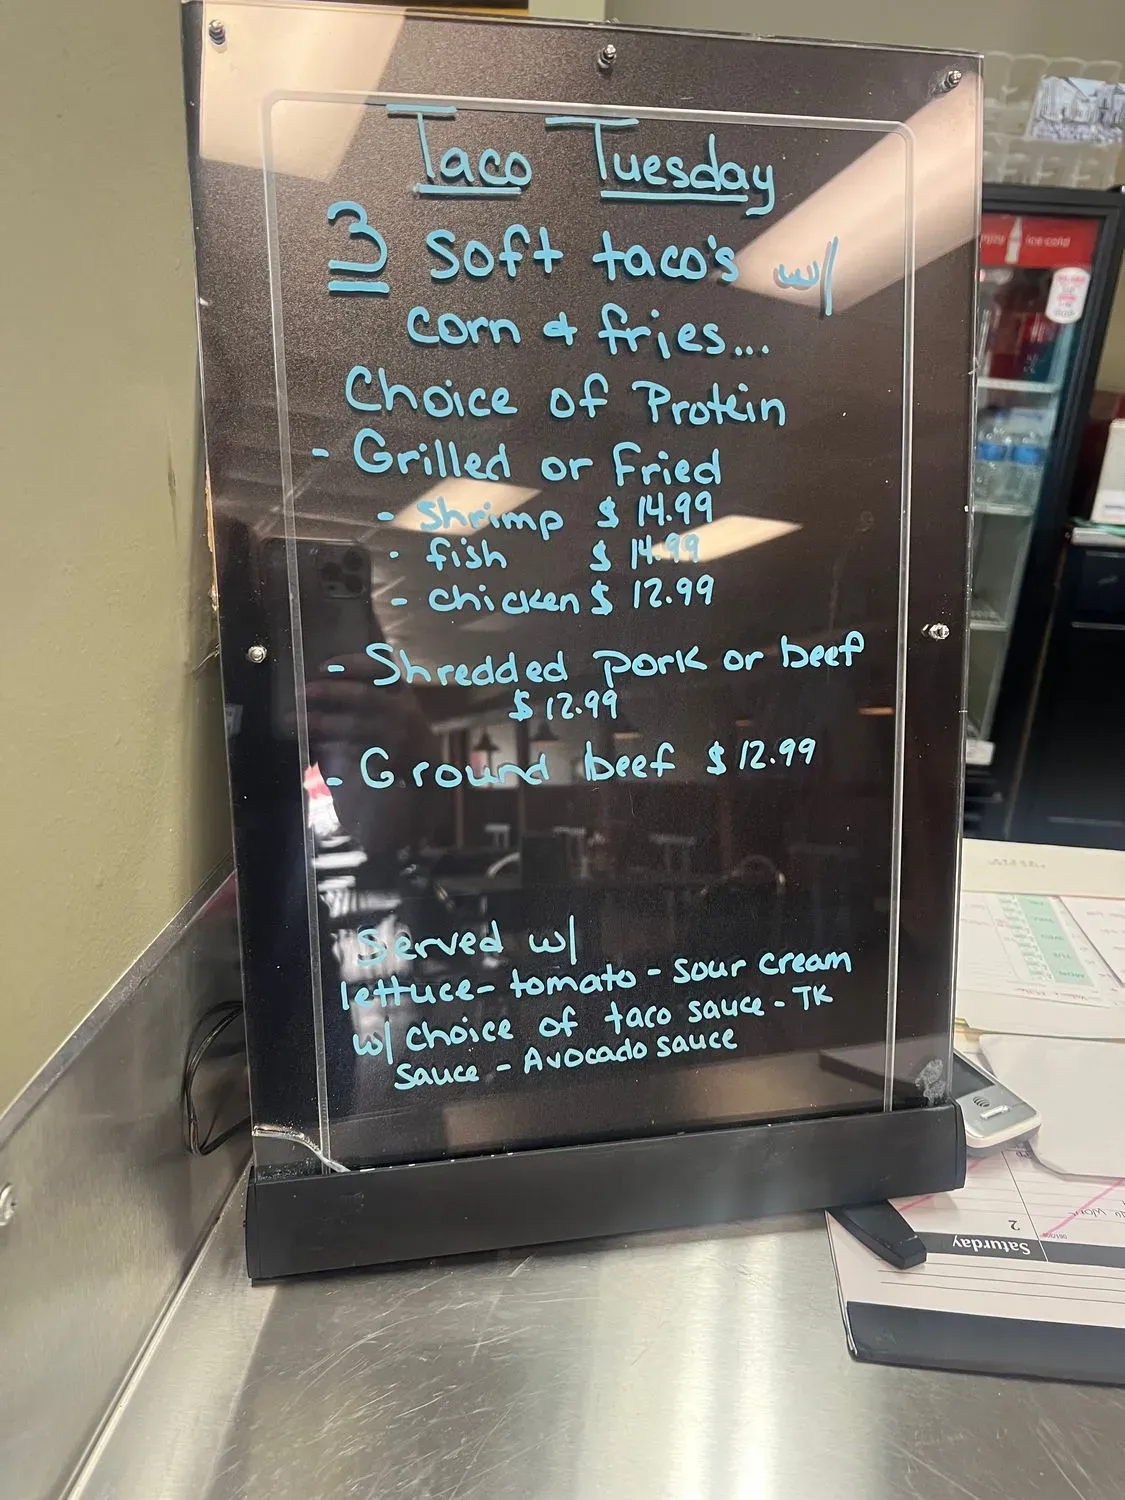 Taco Tuesday
3 soft taco's w/
corn & fries...
Choice of Protein
- Grilled or Fried
- Shrimp $ 14.99
- fish $ 14.99
- chicken $ 12.99
- Shredded pork or beef
$ 12.99
- Ground beef $ 12.99
Served w/
lettuce - tomato - sour cream
w/ choice of taco sauce - TK
sauce - Avocado sauce
ice-cold
Saturday
2